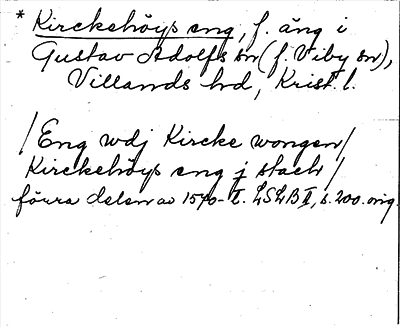 * Kirckehöys eng, f. äng i
Gustav Adolfs sn (f. Viby sn),
Villands hd, Krist. l.
/ Eng wdj Kircke wongen /
Kirckehöys eng j stach /
1570- LSLB II, s. 200. orig.